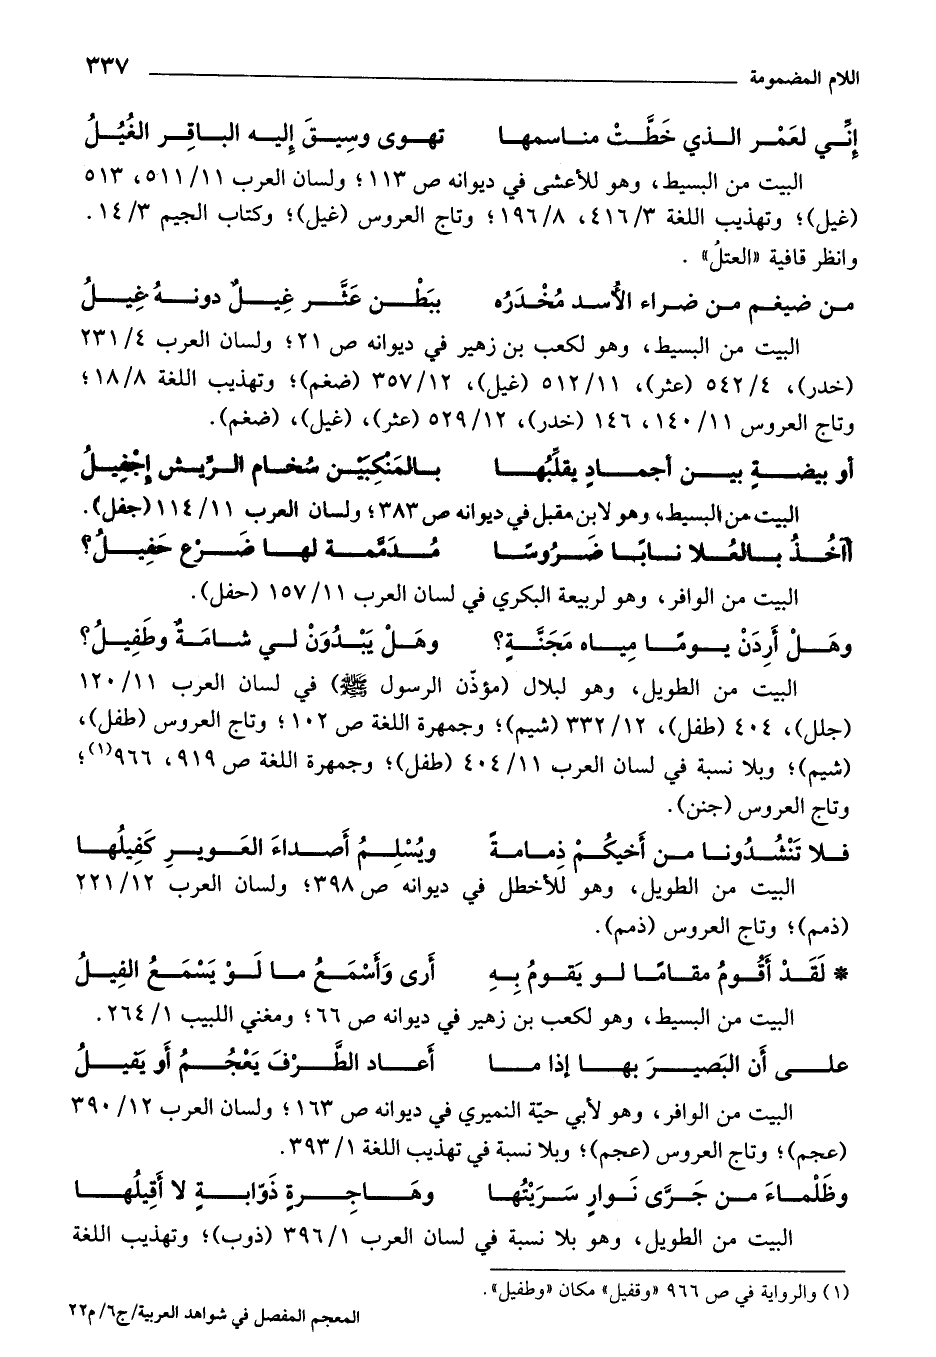 اللام المضمومة ٣٣٧
إنِّي لعَمْر الذي خَطَّتْ مناسمها تهوى وسِيقَ إليه الباقِر الغُيُلُ
البيت من البسيط، وهو للأعشى في ديوانه ص ١١٣؛ ولسان العرب ٥١١/١١، ٥١٣
(غيل)؛ وتهذيب اللغة ٤١٦/٣، ١٩٦/٨؛ وتاج العروس (غيل)؛ وكتاب الجيم ١٤/٣.
وانظر قافية «العتلُ».
من ضيغم من ضراء الأُسد مُخْدَرُه ببَطْن عَثَّر غِيلٌ دونهُ غِيلُ
البيت من البسيط، وهو لكعب بن زهير في ديوانه ص ٢١؛ ولسان العرب ٢٣١/٤
(خدر)، ٥٤٢/٤ (عثر)، ٥١٢/١١ (غيل)، ٣٥٧/١٢ (ضغم)؛ وتهذيب اللغة ١٨/٨؛
وتاج العروس ١٤٠/١١، ١٤٦ (خدر)، ٥٢٩/١٢ (عثر)، (غيل)، (ضغم).
أو بيضةٍ بين أجمادٍ يقلِّبُها بالمَنْكِبَيْن سُخام الرِّيش إجْفِيلُ
البيت من البسيط، وهو لابن مقبل في ديوانه ص ٣٨٣؛ ولسان العرب ١١٤/١١ (جفل).
أآخُذُ بالعُلا نابًا ضَرُوسًا مُدَمَّمة لها ضَرْع حَفِيلُ؟
البيت من الوافر، وهو لربيعة البكري في لسان العرب ١٥٧/١١ (حفل).
وهَلْ أَرِدَنْ يومًا مِياه مَجَنَّةٍ؟ وهَلْ يَبْدُوَنْ لي شامَةٌ وطَفِيلُ؟
البيت من الطويل، وهو لبلال (مؤذّن الرسول ﷺ) في لسان العرب ١٢٠/١١
(جلل)، ٤٠٤ (طفل)، ٣٣٢/١٢ (شيم)؛ وجمهرة اللغة ص ١٠٢؛ وتاج العروس (طفل)،
(شيم)؛ وبلا نسبة في لسان العرب ٤٠٤/١١ (طفل)؛ وجمهرة اللغة ص ٩١٩، ٩٦٦(١)؛
وتاج العروس (جنن).
فلا تَنْشُدُونا من أَخيكُمْ ذِمامةً ويُسْلِمُ أَصداءَ العَويرِ كَفِيلُها
البيت من الطويل، وهو للأخطل في ديوانه ص ٣٩٨؛ ولسان العرب ٢٢١/١٢
(ذمم)؛ وتاج العروس (ذمم).
* لَقَدْ أَقُومُ مقامًا لو يَقومُ بِهِ أَرى وَأَسْمَعُ ما لَوْ يَسْمَعُ الفِيلُ
البيت من البسيط، وهو لكعب بن زهير في ديوانه ص ٦٦؛ ومغني اللبيب ٢٦٤/١.
على أن البَصيرَ بها إذا ما أَعاد الطَّرْفَ يَعْجُمُ أو يَفيلُ
البيت من الوافر، وهو لأبي حيّة النميري في ديوانه ص ١٦٣؛ ولسان العرب ٣٩٠/١٢
(عجم)؛ وتاج العروس (عجم)؛ وبلا نسبة في تهذيب اللغة ٣٩٣/١.
وظَلْماءَ من جَرَّى نَوارٍ سَرَيْتُها وهَاجِرةٍ ذَوّابةٍ لا أَقِيلُها
البيت من الطويل، وهو بلا نسبة في لسان العرب ٣٩٦/١ (ذوب)؛ وتهذيب اللغة
(١) والرواية في ص ٩٦٦ «وقفيل» مكان «وطفيل».
المعجم المفصل في شواهد العربية/ج٦/م٢٢